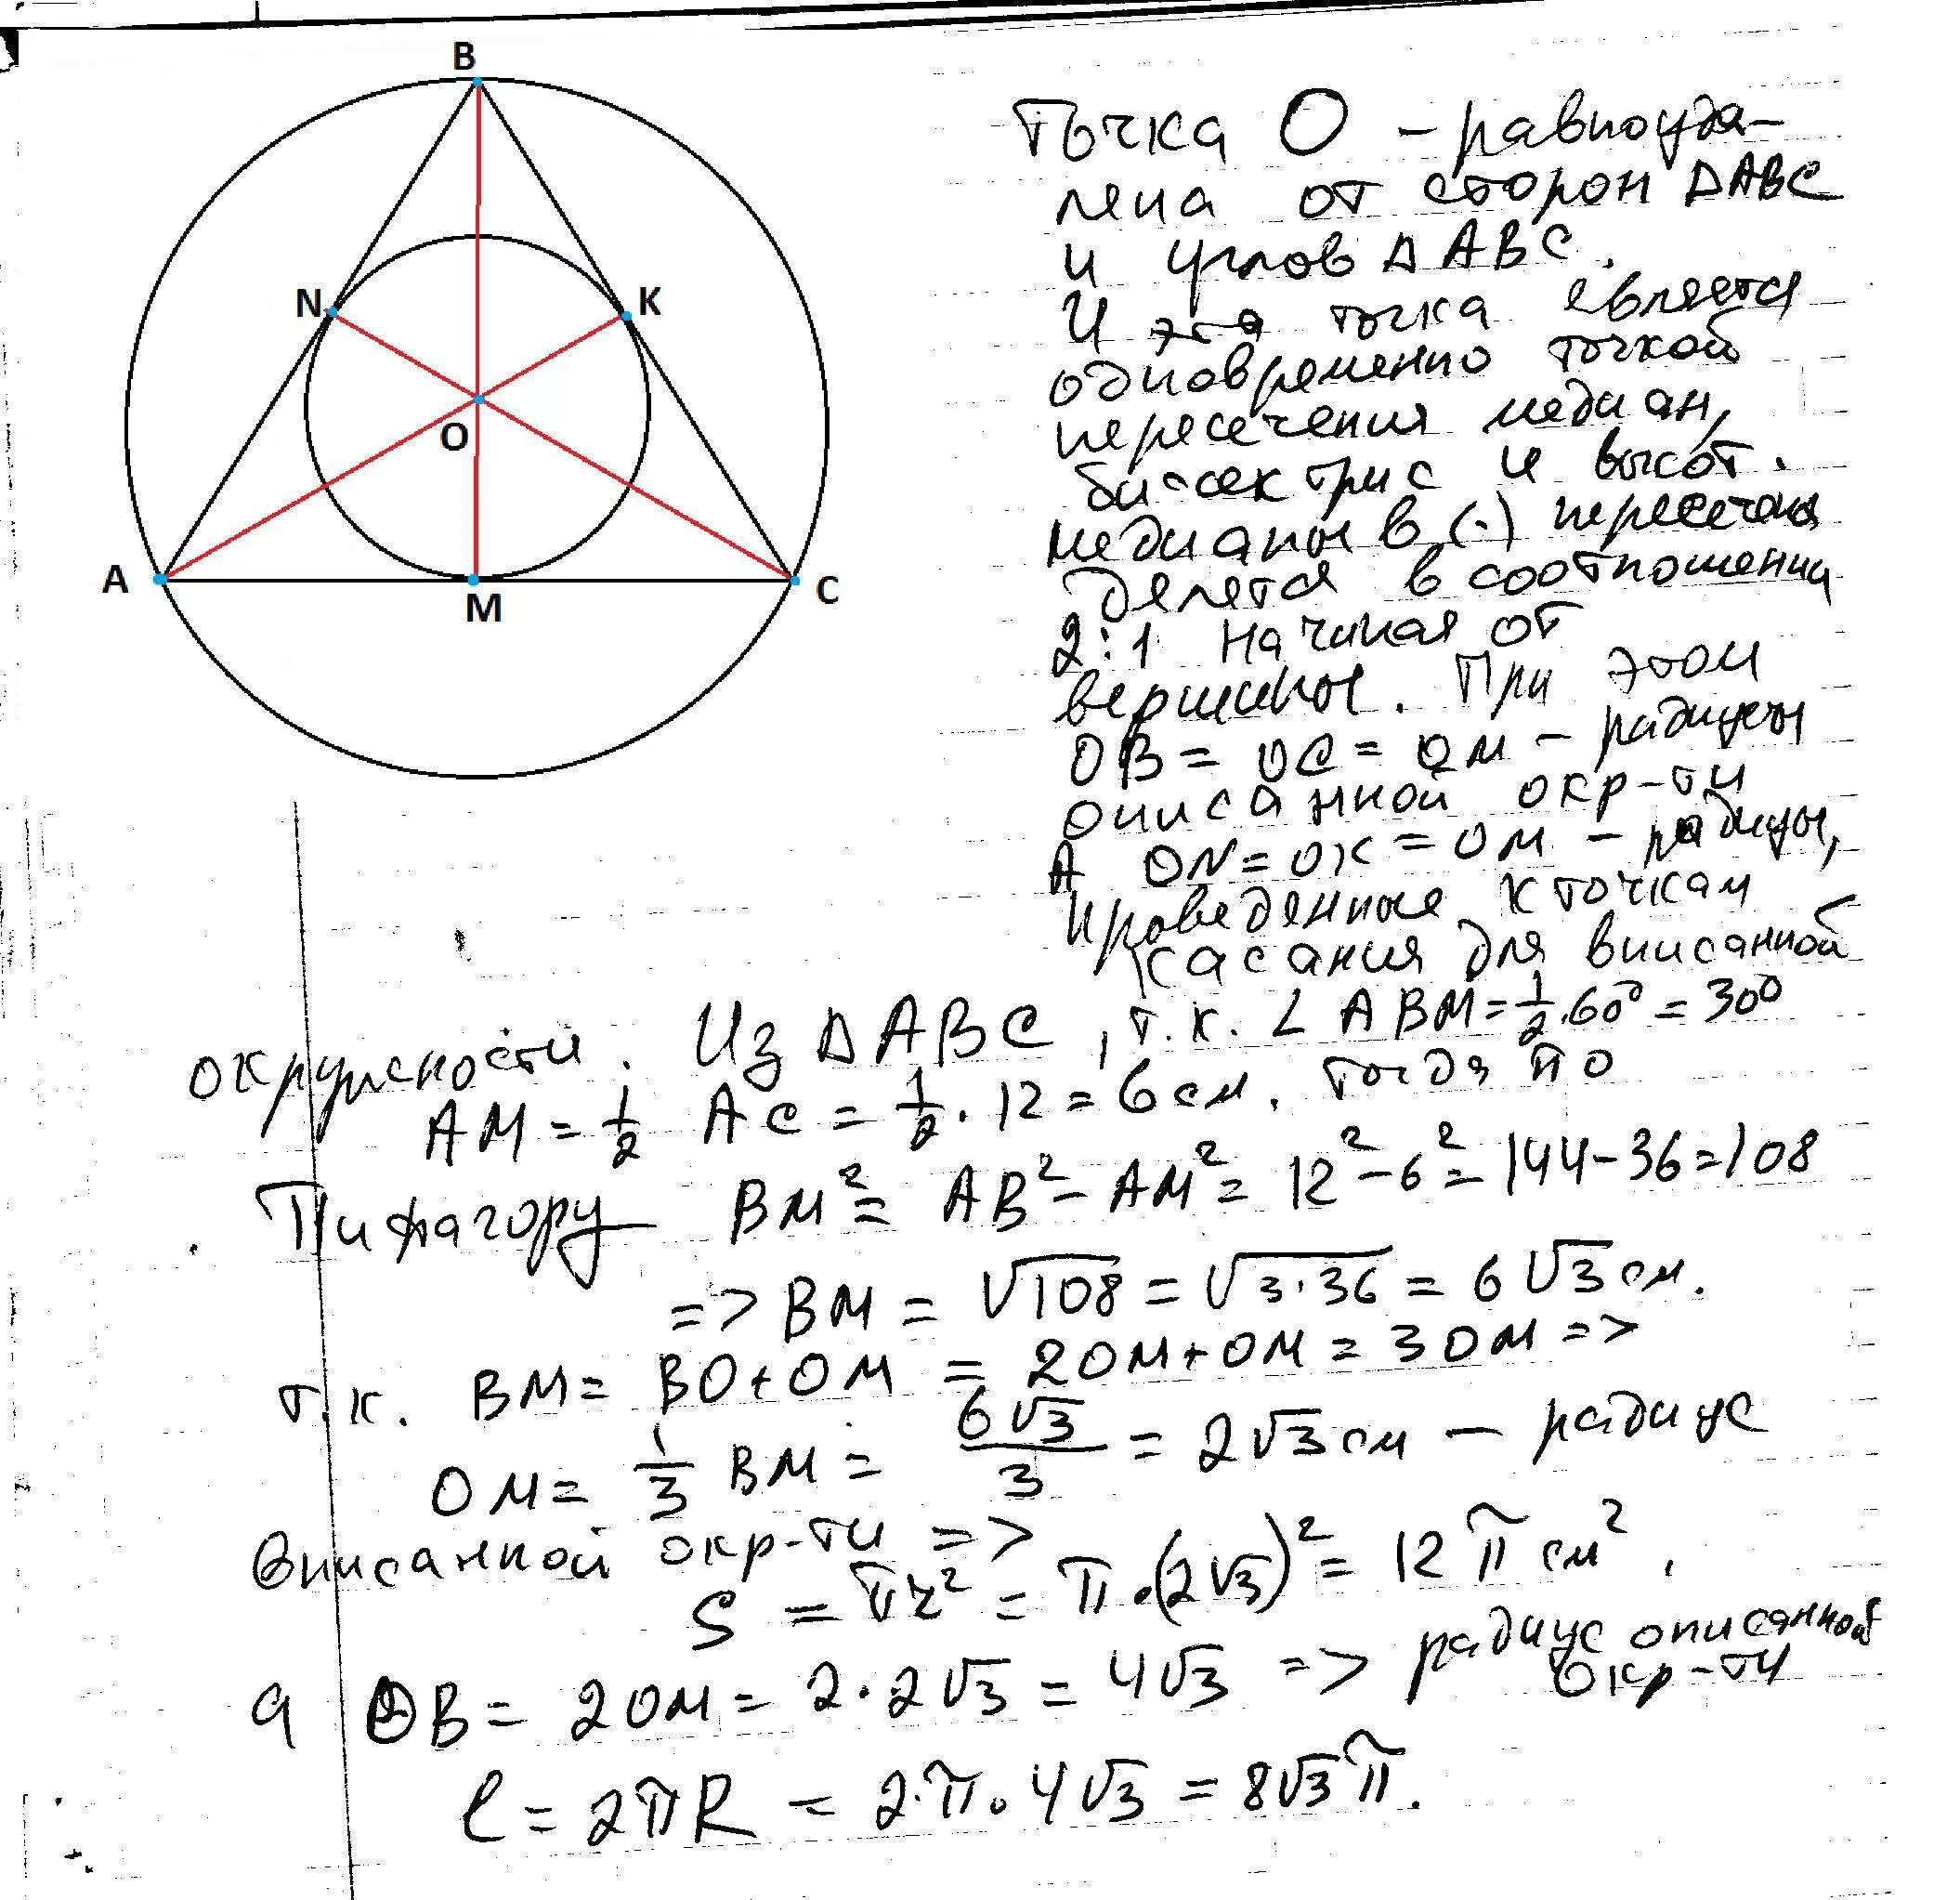 B
N
K
O
A
M
C
Точка O – равноуда-
лена от сторон ΔABC
и углов ΔABC.
И эта точка евляется
одновременно точкой
пересечения медиан,
биссектрис и высот.
медианы в (·) пересечения
делятся в соотношении
2:1 начиная от
вершины. При этом
OB = OC = OM – радиусы
описанной окр-ти
A ON = OK = OM – радиусы,
проведённые к точкам
касания для вписанной
окружности. Из ΔABC, т.к. ∠ABM = 1/2·60° = 30°
AM = 1/2 AC = 1/2 · 12 = 6 см. Тогда по
Пифагору BM² = AB² – AM² = 12² – 6² = 144 – 36 = 108
=> BM = √108 = √3·36 = 6√3 см.
т.к. BM = BO + OM = 2OM + OM = 3OM =>
OM = 1/3 BM = 6√3/3 = 2√3 см – радиус
вписанной окр-ти =>
S = πr² = π·(2√3)² = 12π см².
а OB = 2OM = 2·2√3 = 4√3 => радиус описанной
окр-ти
l = 2πR = 2·π·4√3 = 8√3π.